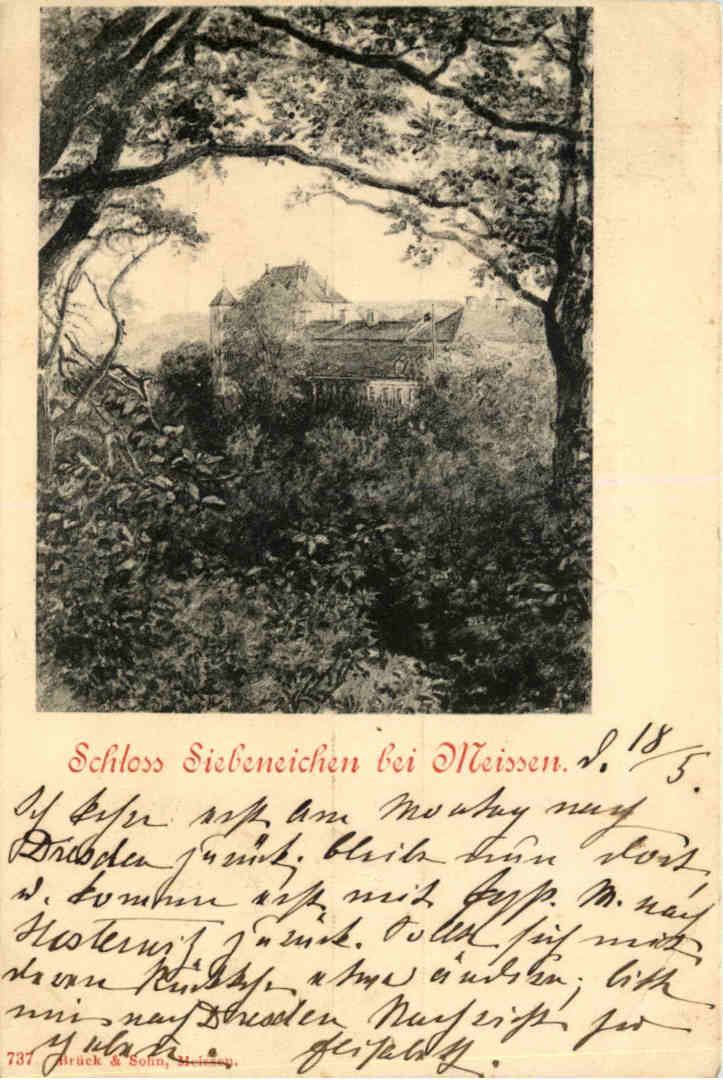 Schloss Siebeneichen bei Meissen. d. 18/5.
Ich kehre erst am Montag nach
Dresden zurück, bleibe nun dort,
u. komme erst mit M. nach
Hosterwitz zurück. Sollte sich mit
deren Rückkehr etwas ändern, bitte
mir nach Dresden Nachricht zu
geben. Elisabeth.
737 Brück & Sohn, Meissen.